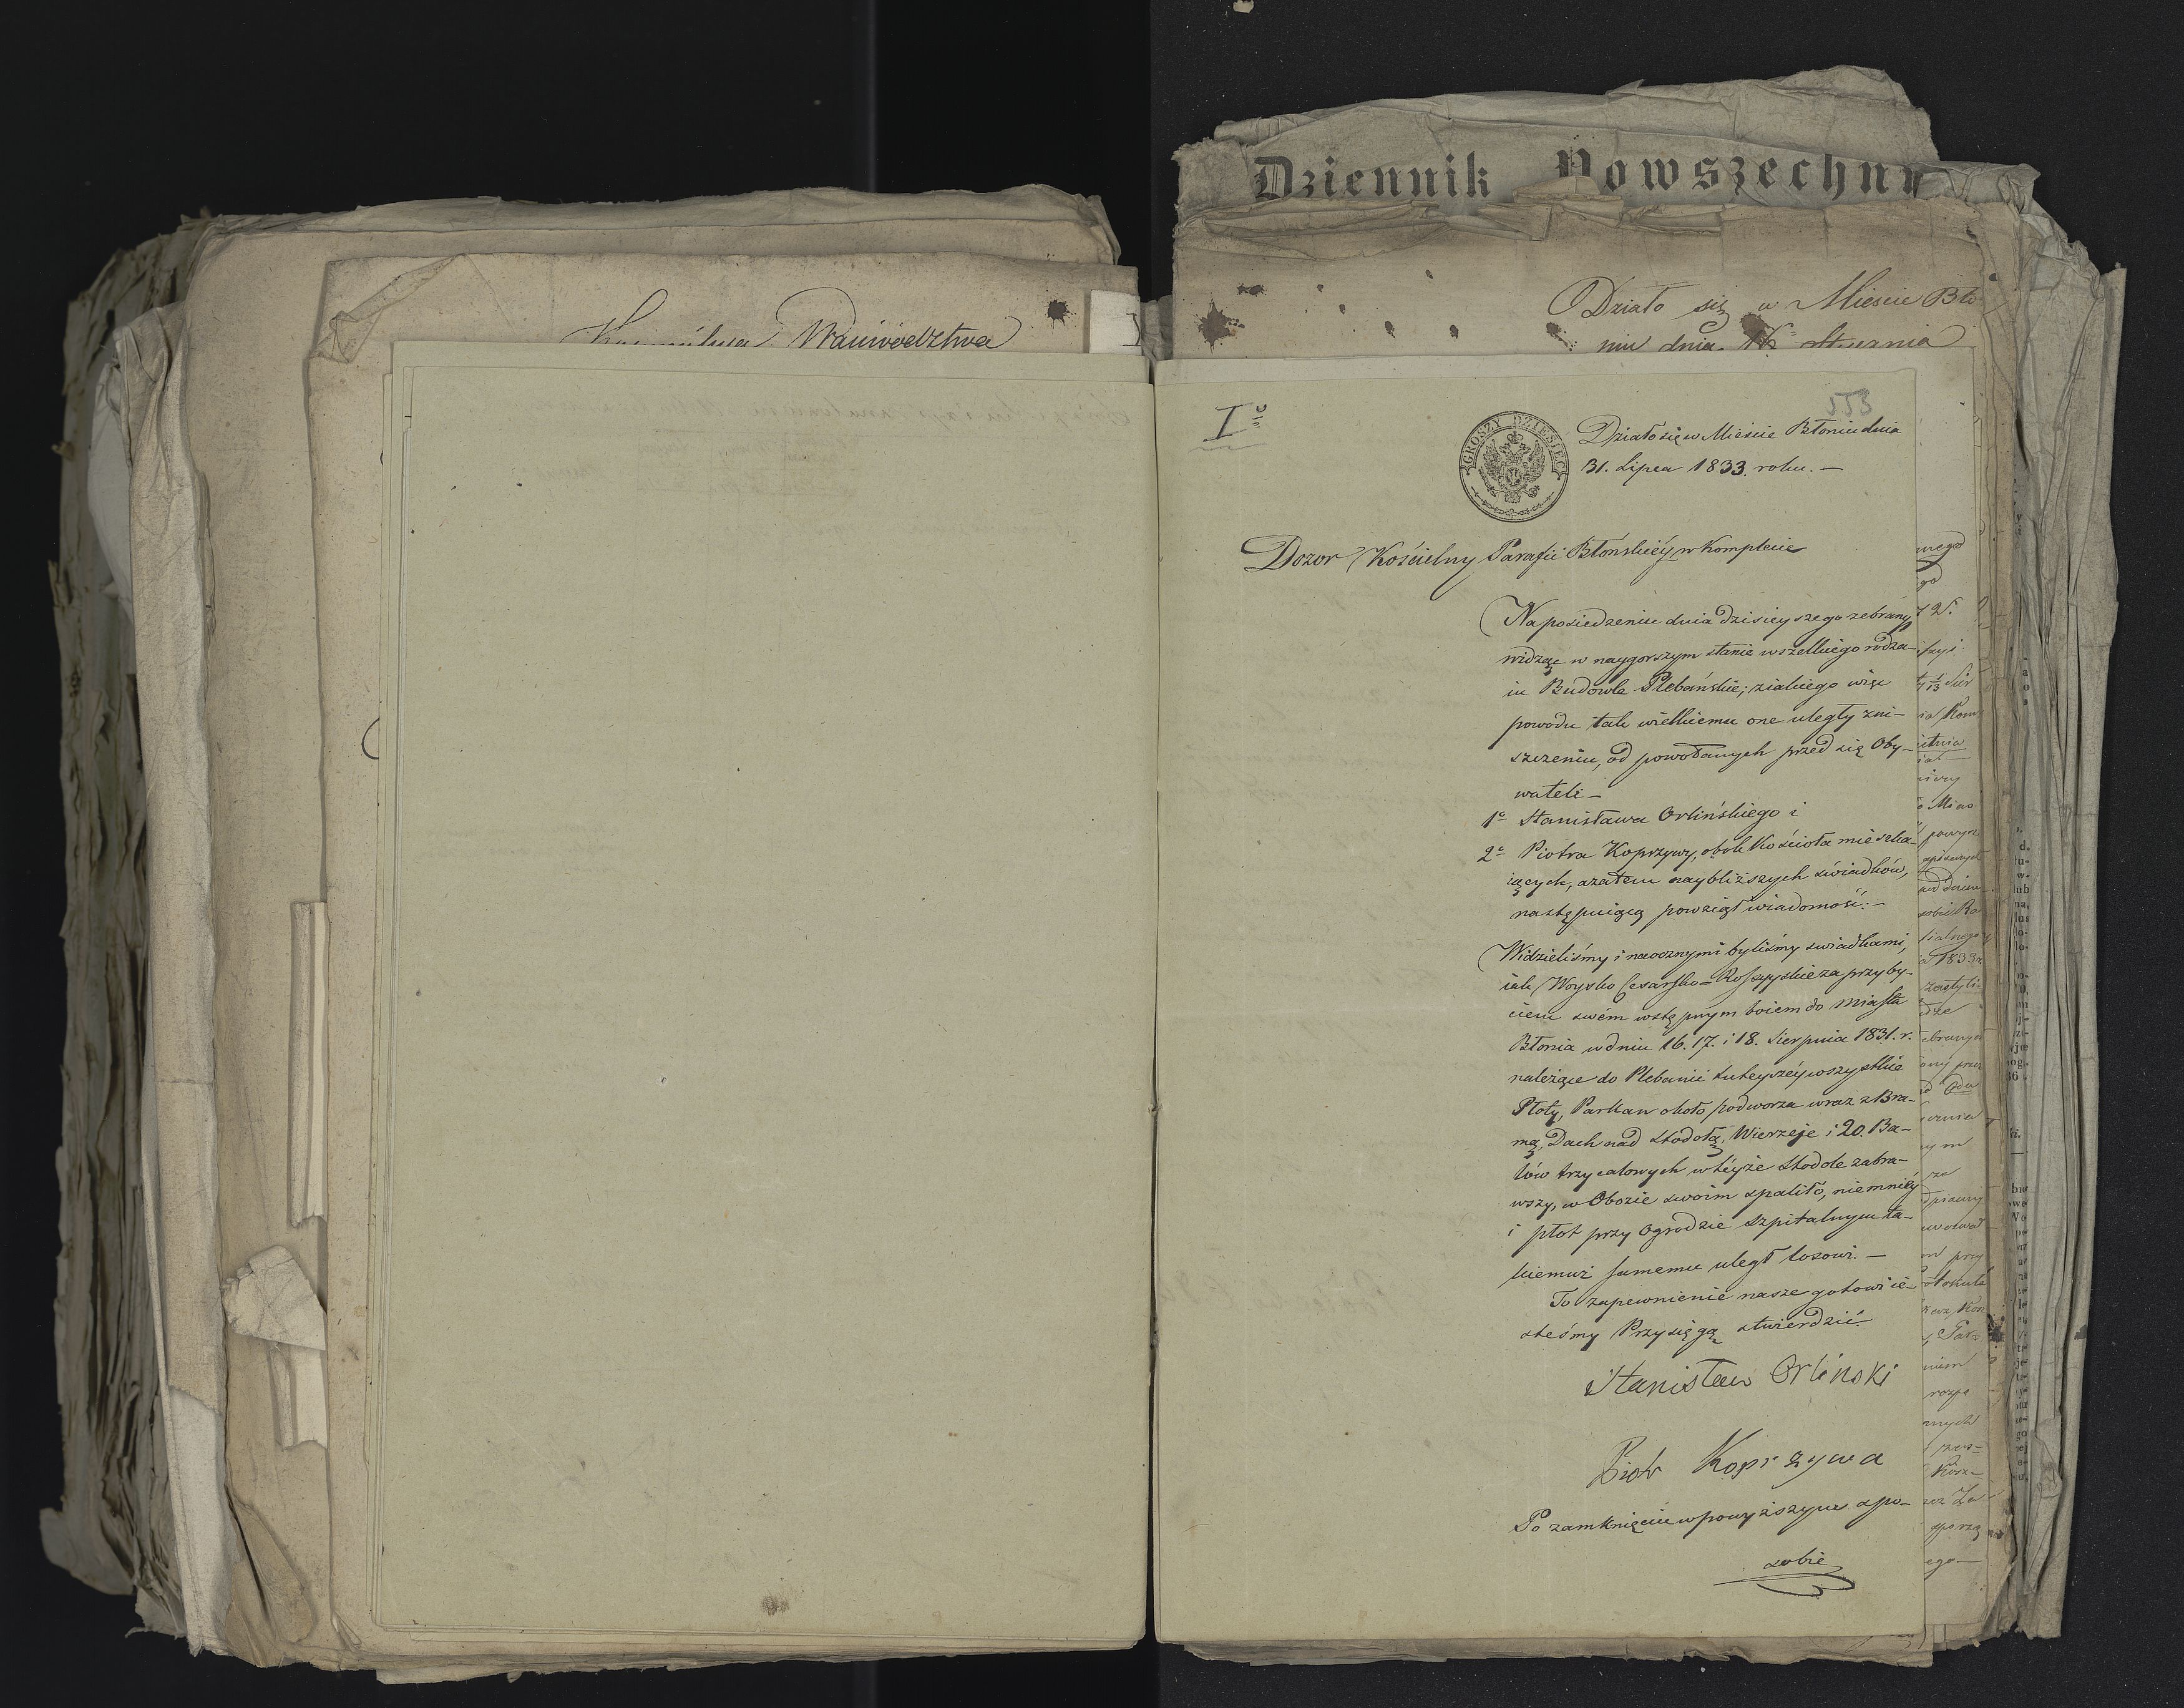 Kommissya Woiewództwa
Dziennik Powszechny
Działo się w Mieście Bło-
niu dnia Stycznia
553
I°
GROSZY DZIESIĘĆ
Działo się w Mieście Błoniu dnia
31. Lipca 1833. roku. —
Dozor Kościelny Parafii Błońskiéy w Komplecie
Na posiedzeniu dnia dzisieyszego zebrany,
widząc w naygorszym stanie wszelkiego rodza-
iu Budowle Plebańskie; z iakiego więc
powodu tak wielkiemu one uległy zni-
szczeniu, od powołanych przed się Oby-
wateli —
1e Stanisława Orlińskiego i
2e Piotra Koprzywy, obok Kościoła mieszka-
iących, a zatem naybliższych świadków,
następuiącą powziął wiadomość: —
Widzieliśmy i naocznymi byliśmy swiadkami,
iak Woysko Cesarsko = Rossyyskie za przyby-
ciem swém wstępnym boiem do Miasta
Błonia w dniu 16. 17. i 18. Sierpnia 1831. r.
należące do Plebanii tuteyszéy wszystkie
Płoty, Parkan około podworza wraz z Bra-
mą, Dach nad stodołą, Wierzeje i 20. Ba-
lów trzycalowych w téyże Stodole zabra-
wszy, w Obozie swoim spaliło, niemniéy
i płot przy Ogrodzie Szpitalnym ta-
kiemuż samemu uległ losowi. —
To zapewnienie nasze gotowi ie-
steśmy Przysięgą stwierdzić. —
Stanisław Orlinski
Piotr Koprzywa
Po zamknięciu w powyższym spo-
sobie